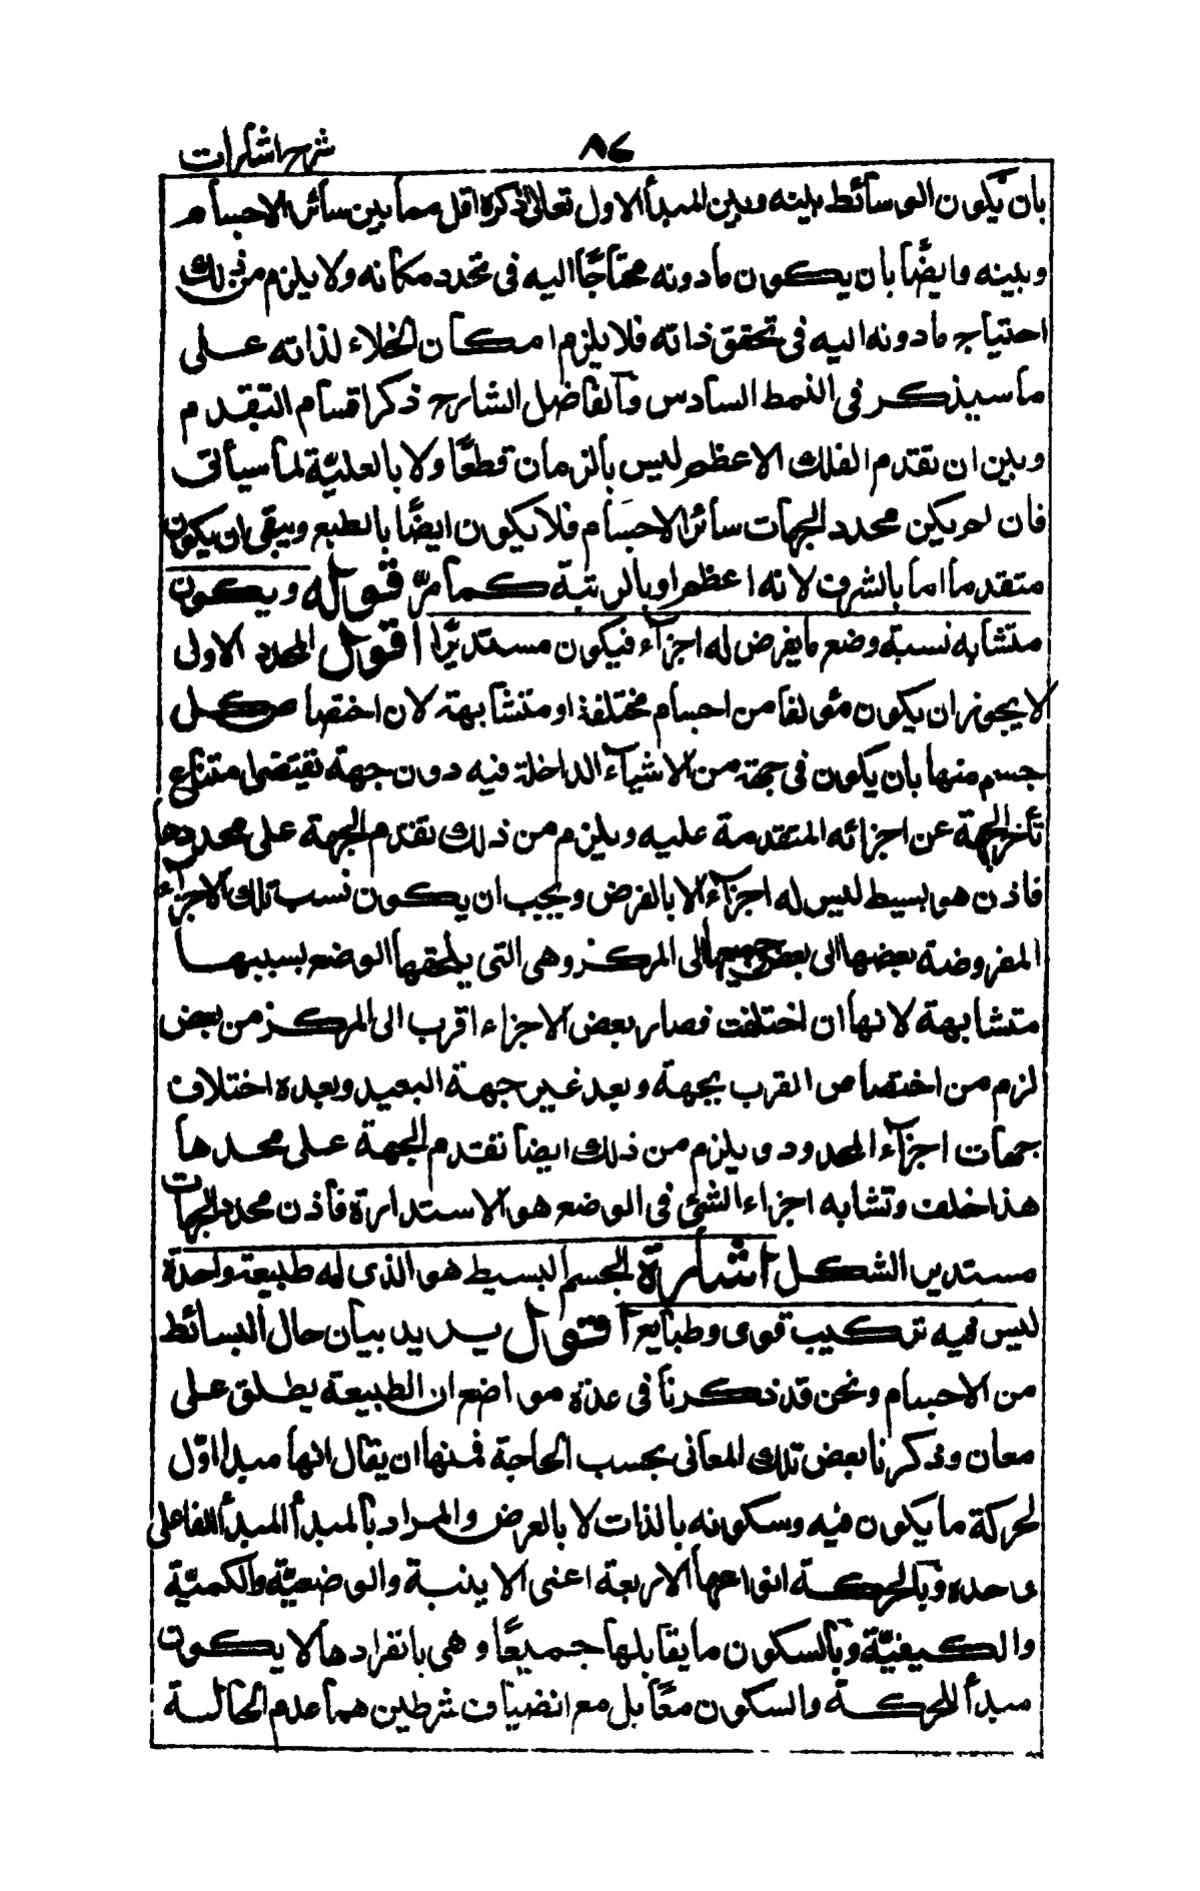 شرح اشارات
٨٤
بان يكون الوسائط بينه وبين المبدأ الاول تعالى ذكره اقل مما بين سائر الاجسام
وبينه وايضًا بان يكون مادونه محتاجًا اليه فى تحدد مكانه ولا يلزم من ذلك
احتياج مادونه اليه فى تحقق ذاته فلا يلزم امكان الخلاء لذاته على
ما سيذكر فى النمط السادس والفاضل الشارح ذكر اقسام التقدم
وبين ان تقدم الفلك الاعظم ليس بالزمان قطعًا ولا بالعليّة لما سيأتى
فان لم يكن محدد الجهات سائر الاجسام فلا يكون ايضًا بالطبع ويبقى ان يكون
متقدما اما بالشرف لانه اعظم او بالرتبة كما مرّ قوله ويكون
متشابه نسبة وضع ما يفرض له اجزاء فيكون مستديرًا اقول المحدد الاول
لا يجوز ان يكون مؤلفا من اجسام مختلفة او متشابهة لان اختصاص كل
جسم منها بان يكون فى جهة من الاشياء الداخلة فيه دون جهة تقتضى امتناع
تأخر الجهة عن اجزائه المتقدمة عليه ويلزم من ذلك تقدم الجهة على محددها
فاذن هو بسيط ليس له اجزاء الا بالفرض ويجب ان يكون نسب تلك الاجزاء
المفروضة بعضها الى بعض جميعها الى المركز وهى التى يلحقها الوضع بسببها
متشابهة لانها ان اختلفت فصار بعض الاجزاء اقرب الى المركز من بعض
لزم من اختصاص القرب بجهة وبعد غير جهة البعيد وبعده اختلاف
جهات اجزاء المحدود ويلزم من ذلك ايضا تقدم الجهة على محددها
هذا خلف وتشابه اجزاء الشئ فى الوضع هو الاستدارة فاذن محدد الجهات
مستدير الشكل اشارة الجسم البسيط هو الذى له طبيعة واحدة
ليس فيه تركيب قوى وطبايع اقول يريد بيان حال البسائط
من الاجسام ونحن قد ذكرنا فى عدة مواضع ان الطبيعة يطلق على
معان وذكرنا بعض تلك المعانى بحسب الحاجة فمنها ان يقال انها مبدا اوّل
لحركة ما يكون فيه وسكونه بالذات لا بالعرض والمراد بالمبدأ المبدأ الفاعلى
وحده وبالحركة انواعها الاربعة اعنى الاينية والوضعيّة والكميّة
والكيفيّة وبالسكون ما يقابلها جميعًا وهى بانفرادها لا يكون
مبدأ للحركة والسكون معًا بل مع انضياف شرطين هما عدم الحالة